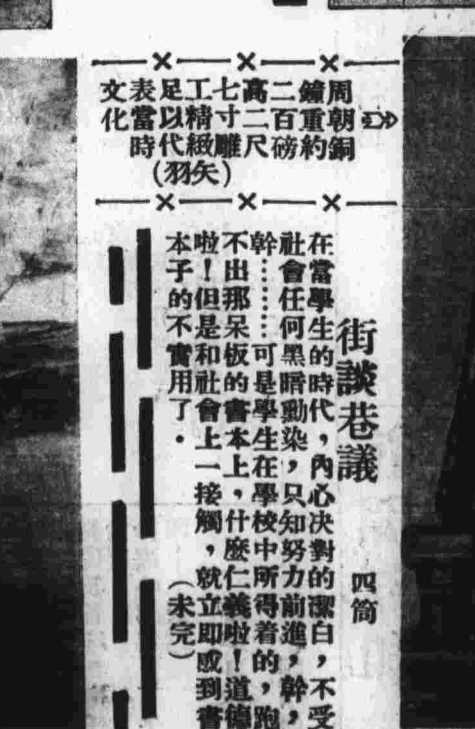 周朝銅
鐘重約
二百磅
高二尺
七寸雕
工精緻
足以代
表當時
文化
(矢羽)
街談巷議 四筒
在當學生的時代，內心決對的潔白，不受
社會任何黑暗動染，只知努力前進，幹，
幹………可是學生在學校中所得着的，跑
不出那呆板的書本上，什麼仁義啦！道德
啦！但是和社會上一接觸，就立即感到書
本子的不實用了．（未完）